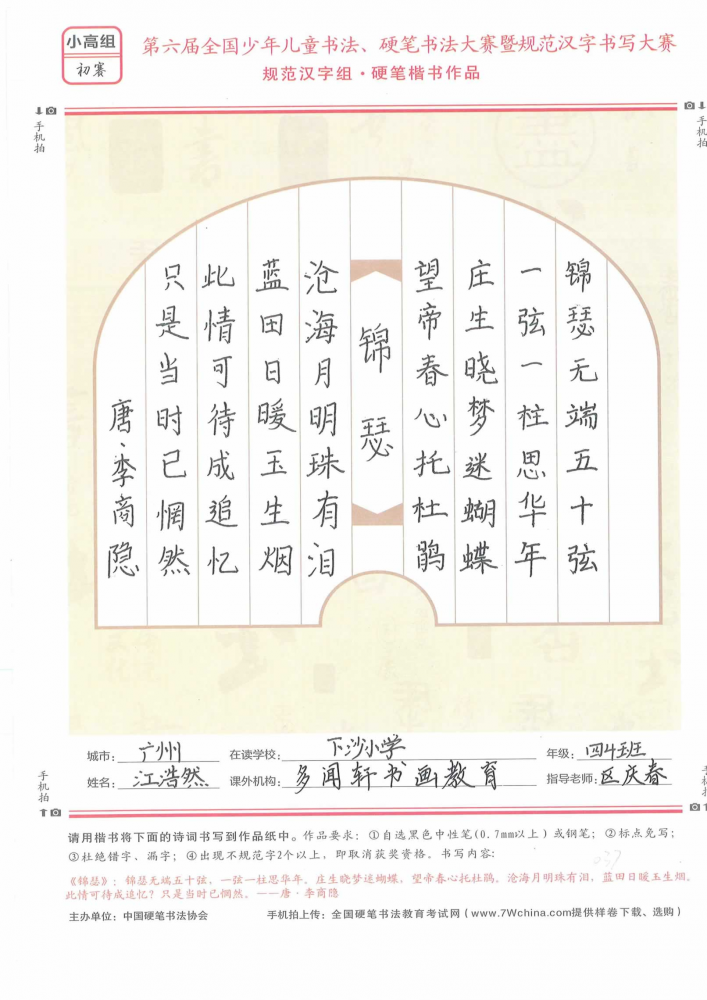 小高组
初赛
第六届全国少年儿童书法、硬笔书法大赛暨规范汉字书写大赛
规范汉字组·硬笔楷书作品
手机拍
手机拍
锦瑟无端五十弦
一弦一柱思华年
庄生晓梦迷蝴蝶
望帝春心托杜鹃
锦瑟
沧海月明珠有泪
蓝田日暖玉生烟
此情可待成追忆
只是当时已惘然
唐·李商隐
城市：广州 在读学校：下沙小学 年级：四4班
姓名：江浩然 课外机构：多闻轩书画教育 指导老师：区庆春
手机拍
手机拍
请用楷书将下面的诗词书写到作品纸中。作品要求：①自选黑色中性笔(0.7mm以上)或钢笔；②标点免写；
③杜绝错字、漏字；④出现不规范字2个以上，即取消获奖资格。书写内容：
037
《锦瑟》：锦瑟无端五十弦，一弦一柱思华年。庄生晓梦迷蝴蝶，望帝春心托杜鹃。沧海月明珠有泪，蓝田日暖玉生烟。
此情可待成追忆？只是当时已惘然。——唐·李商隐
主办单位：中国硬笔书法协会 手机拍上传：全国硬笔书法教育考试网（www.7Wchina.com提供样卷下载、选购）